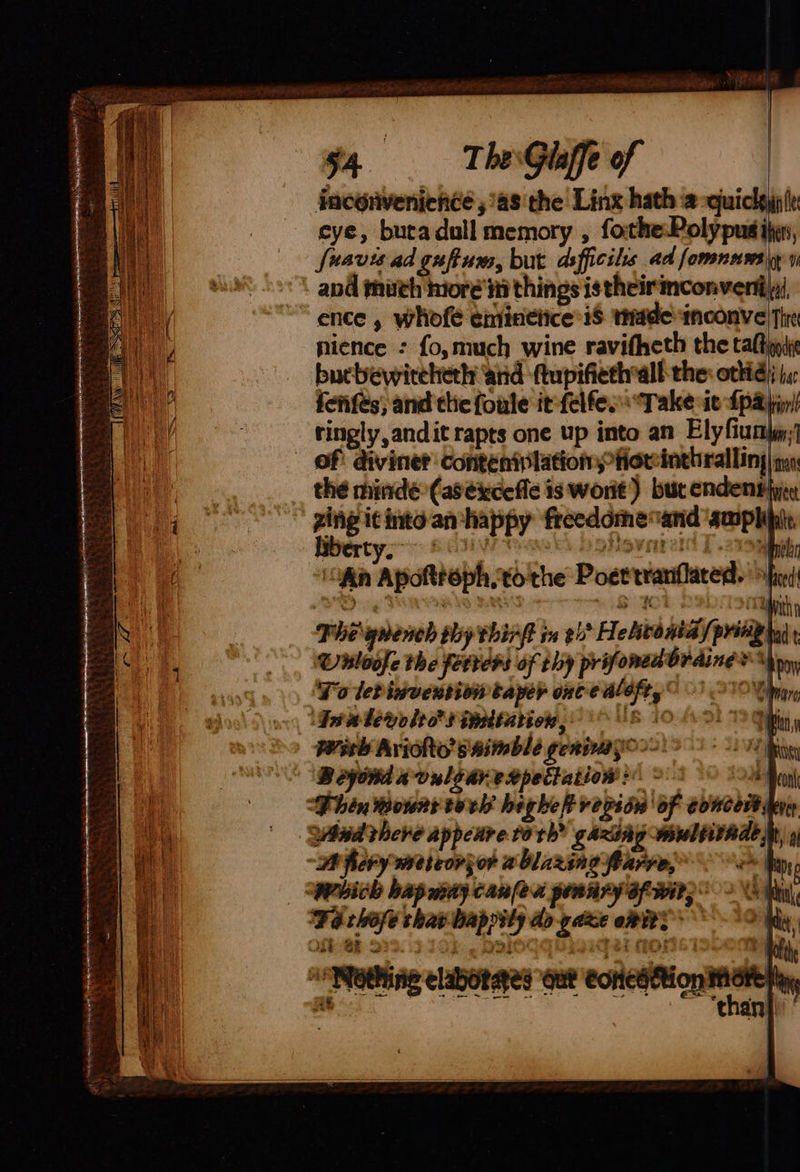 54 The Glaſſe of
inconvenience, as the Linx hath a quick
eye, but a dull memory, ſo the Polypus
ſuavis ad guſtum, but difficilis ad ſomnum
and much more in things is their inconveni
ence, whoſe eminence is made inconve
nience: ſo, much wine raviſheth the taſt
but bewitcheth and ſtupifieth all the other
ſenſes, and the ſoule it ſelfe. Take it ſpa
ringly, and it rapts one up into an Elyſium
of diviner contemplation, not inthralling
the minde (as exceſſe is wont) but endeni
zing it into an happy freedome and ample
liberty.
An Apoſtroph, to the Poet tranſlated.
The quench thy thirſt in th' Heliconia' ſpring
Unlooſe the fetters of thy priſoned braine
To let invention caper once alofty
In a levolto's imitation,
With Arioſto's nimble genius
Beyond a vulgar expectation
Then mount to th' higheſt region of conceit
And there appeare to th' gazing multitude,
A fiery meteor, or a blazing ſtarre,
Which hap may cauſe a penury of wit,
To thoſe that happily do gaze on it:
Nothing elaborates our concoction more
than